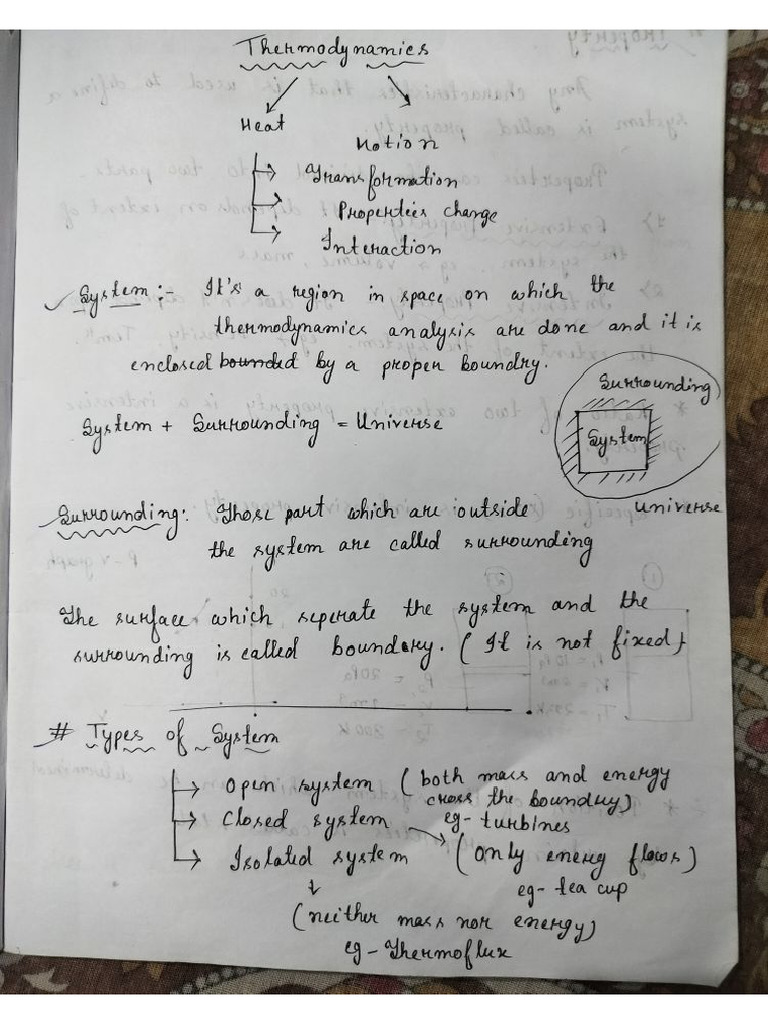 Thermodynamics
Heat
Motion
Transformation
Properties change
Interaction
System :- It's a region in space on which the
thermodynamics analysis are done and it is
enclosed bounded by a proper boundry.
Surrounding
System + Surrounding = Universe
System
universe
Surrounding: Those part which are outside
the system are called surrounding
The surface which seperate the system and the
surrounding is called boundary. ( It is not fixed)
# Types of System
Open system ( both mass and energy
cross the boundry)
Closed system eg- turbines
Isolated system (Only energ flows)
eg- tea cup
(neither mass nor energy)
eg - Thermoflux